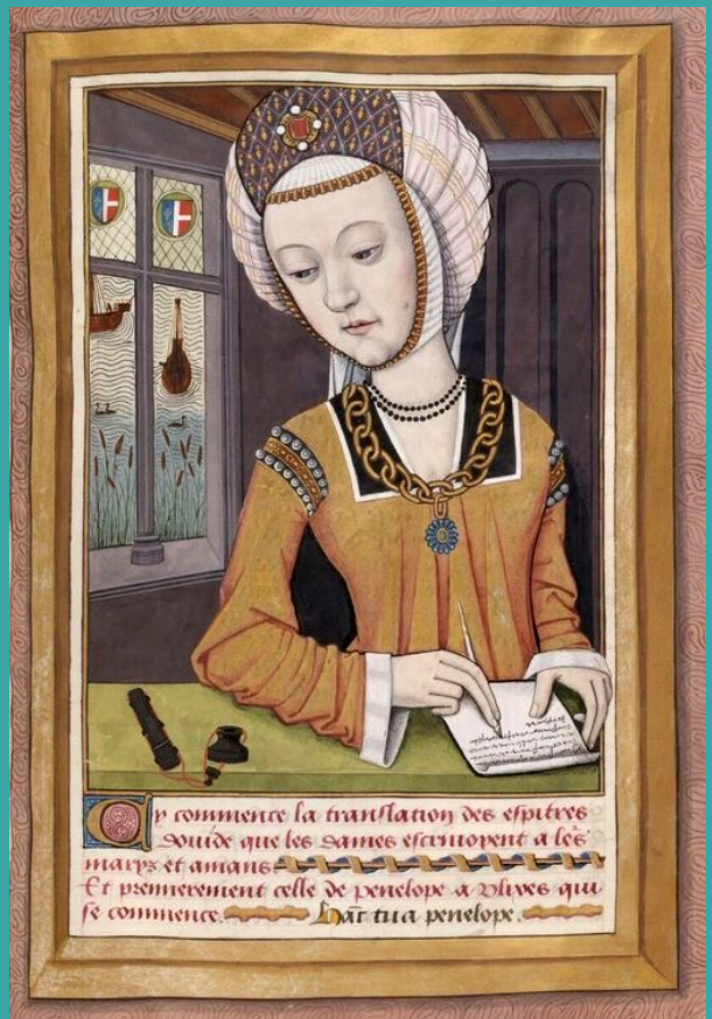 Cy commence la translation des espitres
douide que les dames escriuoyent a leꝰs
marys et amans.
Et premierement celle de penelope a Vlixes qui
se commence. Hāc tua penelope.